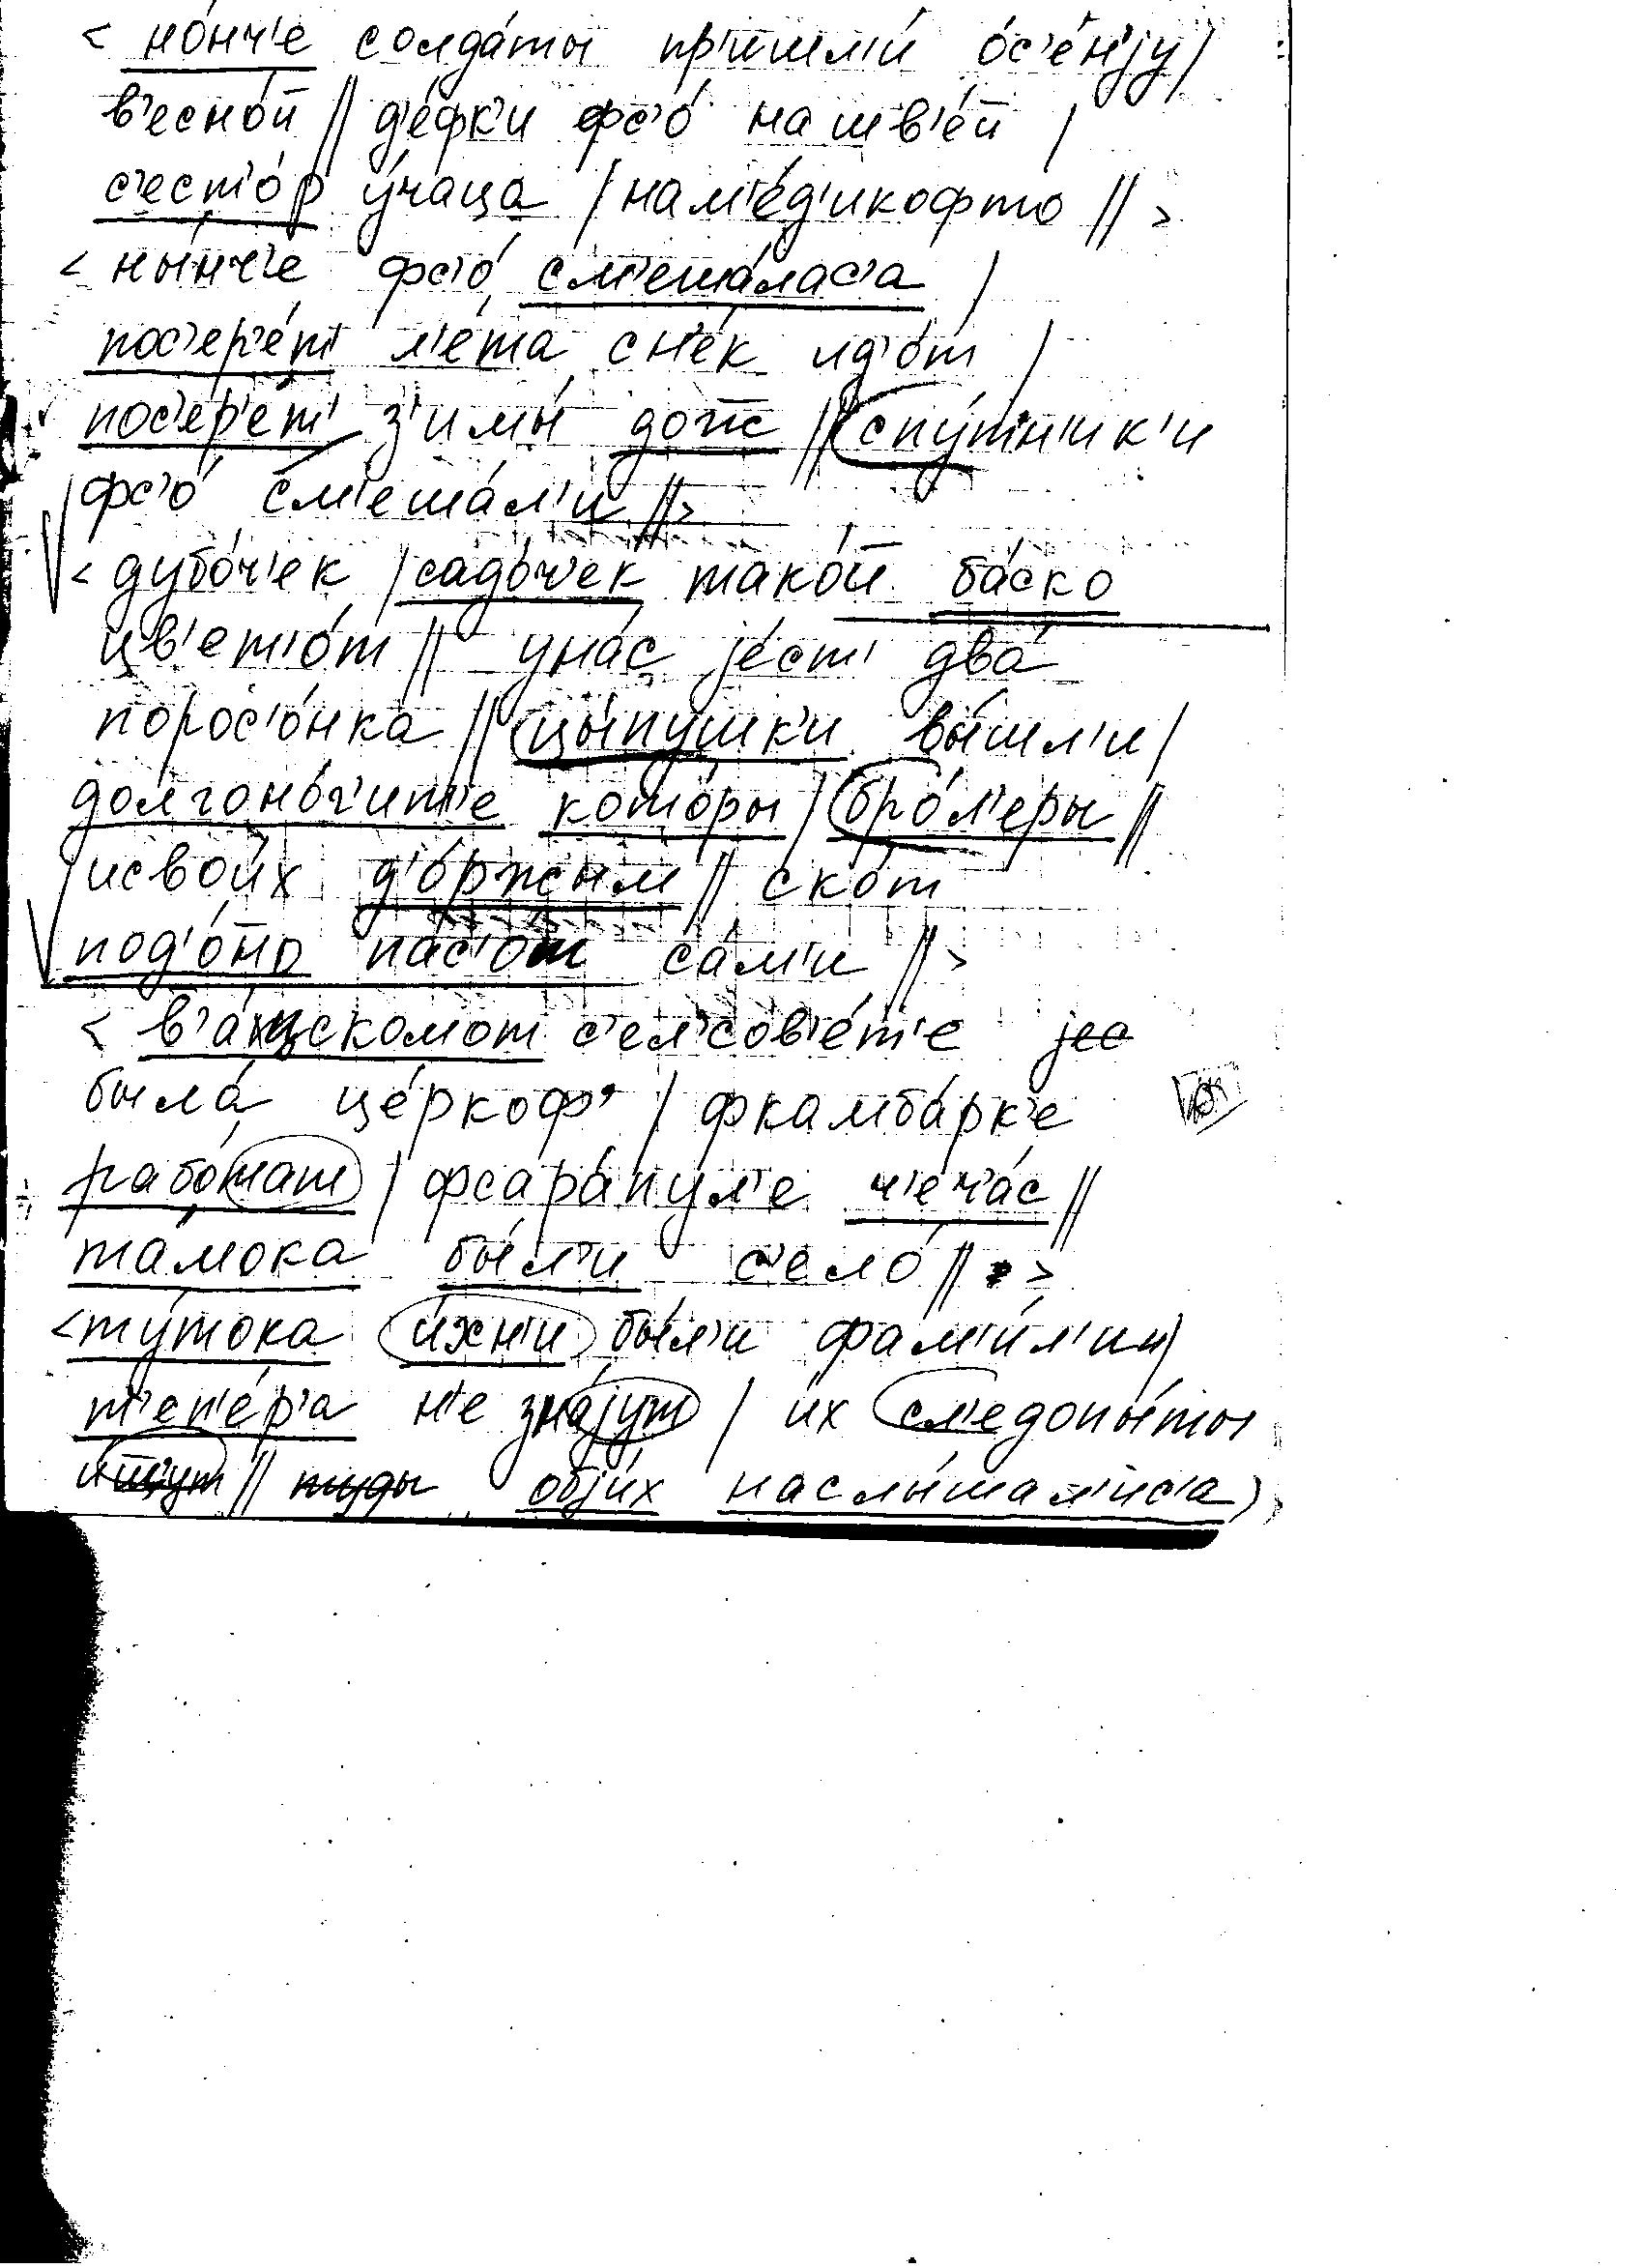 < но́нч'е солда́ты пр'ишл'и́ о́с'е́н'jу /
в'есно́й // д'е́фк'и фс'о́ на шв'е́й /
с'ест'о́р у́чаца / нам'е́д'икофто // >
< ны́нч'е фс'о́ см'еша́лас'а /
пос'ер'е́т' л'е́та сн'е́к ид'о́т /
пос'ер'е́т' з'имы́ до́ж // спу́тн'ик'и
фс'о́ см'еша́л'и // >
< дубо́ч'ек / садо́ч'ек тако́й ба́ско
цв'ет'о́т // уна́с jе́ст' два́
порос'о́нка // цы́пушк'и вы́шл'и /
долгоно́г'ит'е кото́ры / бро́л'еры //
исвои́х д'о́ржым // ско́т
под'о́нно пас'о́т са́м'и // >
< в'а́цскомот с'ел'сов'е́т'е jес
была́ це́ркоф' / фкамба́рк'е
рабо́тат / фсара́пул'е ч'еч'а́с //
та́мока бы́л'и с'ело́ // >
< ту́тока и́хн'и бы́л'и фам'и́л'ии /
т'еп'е́р'а н'е зна́jут / их сл'едопы́ты
и́щут // туды обjи́х наслы́шал'ис'а >